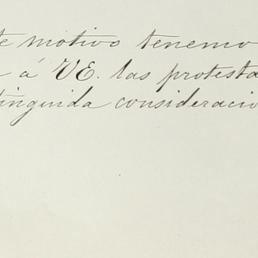 te motivo tenemo
á VE. las protesta
tinguida consideracio